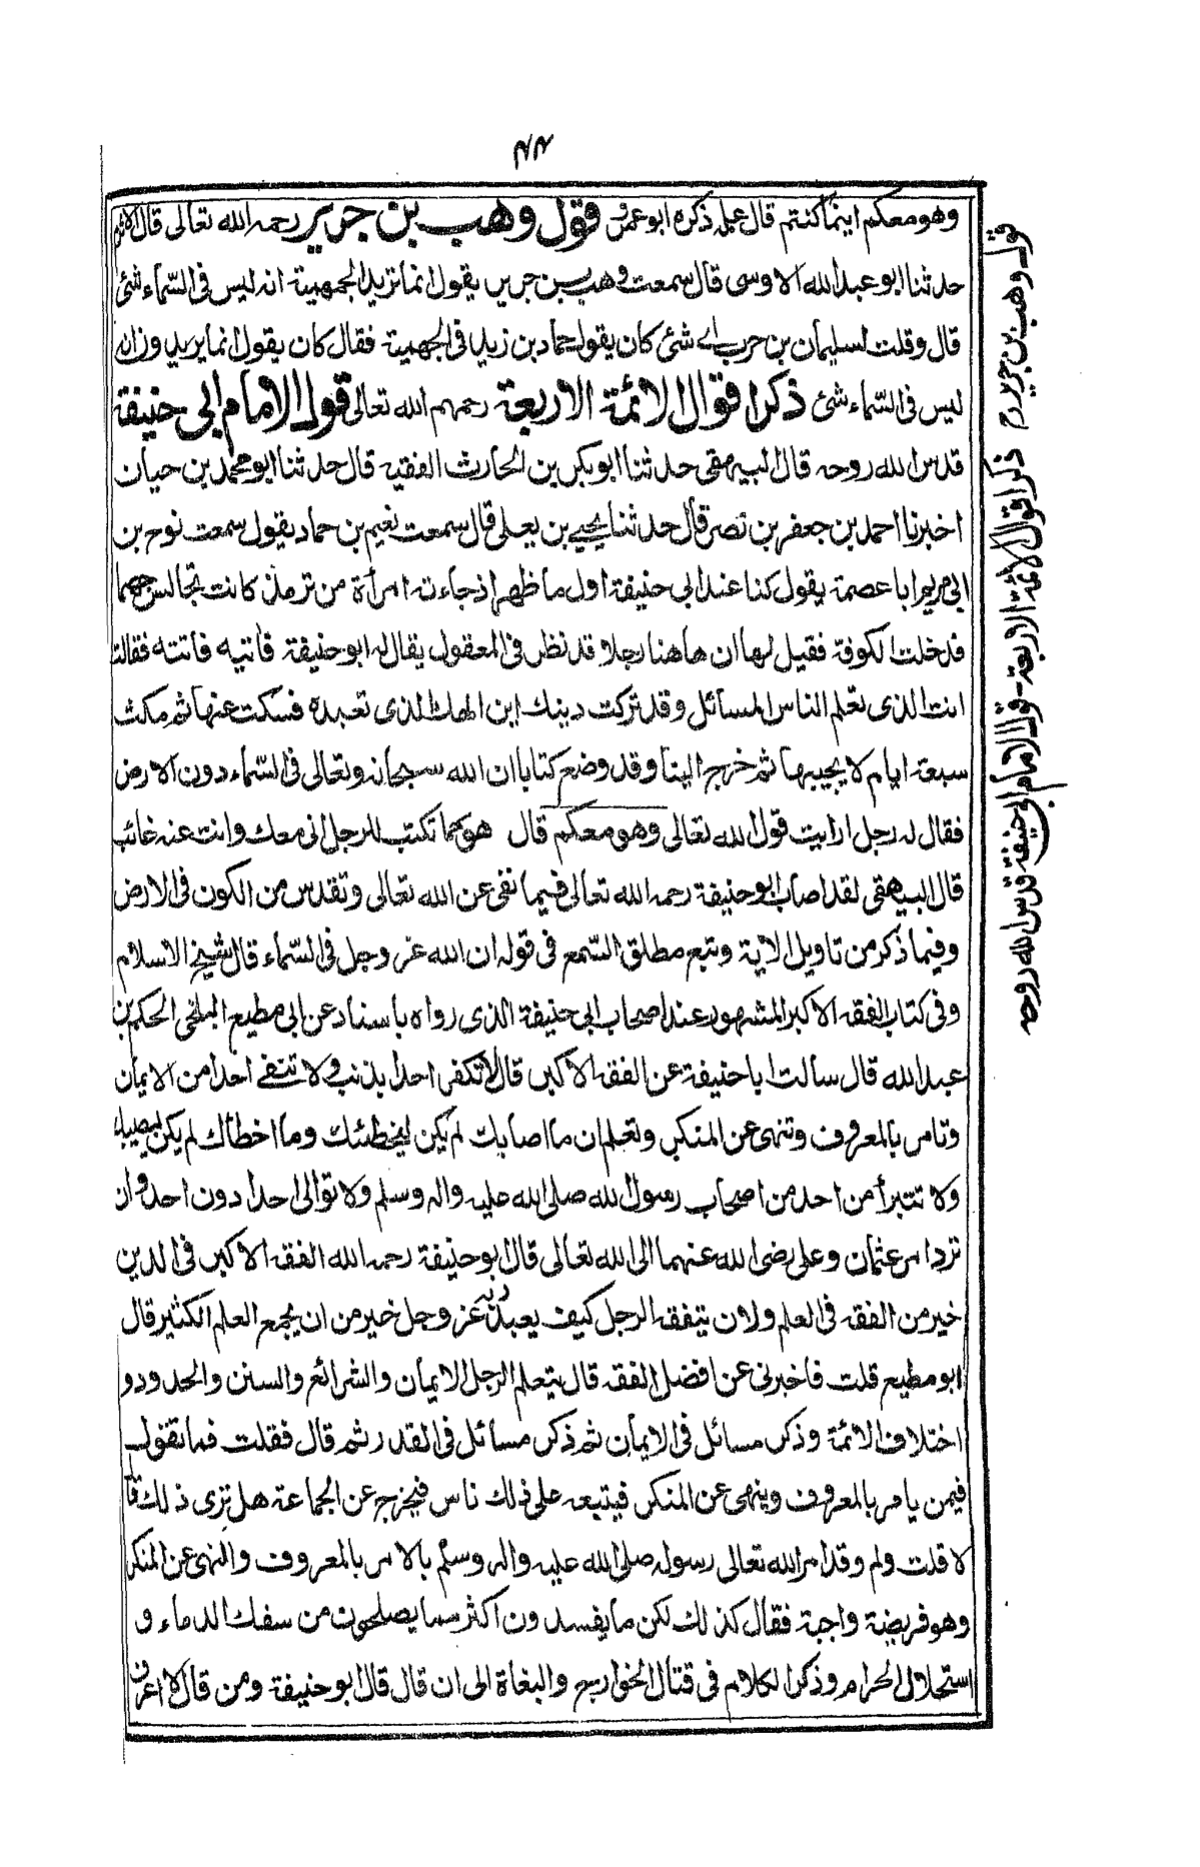 ٤٤
وهو معكم اينما كنتم قال علمه ذكره ابو عمر قول وهب بن جرير رحمه الله تعالى قال الاثرم
حدثنا ابو عبد الله الاوسى قال سمعت وهب بن جرير يقول انما تريد الجهمية انه ليس فى السّماء شئ
قال وقلت لسليمان بن حرب اى شئ كان يقول حماد بن زيد فى الجهمية فقال كان يقول انما يريدون انه
ليس فى السّماء شئ ذكر اقوال الائمة الاربعة رحمهم الله تعالى قول الامام ابى حنيفة
قدس الله روحه قال البيهقى حدثنا ابو بكر بن الحارث الفقيه قال حدثنا ابو محمد بن حيان
اخبرنا احمد بن جعفر بن نصر قال حدثنا يحيى بن يعلى قال سمعت نعيم بن حماد يقول سمعت نوح بن
ابى مريم ابا عصمة يقول كنا عند ابى حنيفة اول ما ظهر اذ جاءته امرأة من ترمذ كانت تجالس جهما
فدخلت الكوفة فقيل لها ان هاهنا رجلا قد نظر فى المعقول يقال له ابو حنيفة فأتيه فأتته فقالت
انت الذى تعلم الناس المسائل وقد تركت دينك اين الهك الذى تعبده فسكت عنها ثم مكث
سبعة ايام لا يجيبها ثم خرج الينا وقد وضع كتابا ان الله سبحانه وتعالى فى السّماء دون الارض
فقال له رجل ارايت قول الله تعالى وهو معكم قال هو كما تكتب للرجل انى معك وانت عنه غائب
قال البيهقى لقد اصاب ابو حنيفة رحمه الله تعالى فيما نفى عن الله تعالى وتقدس من الكون فى الارض
وفيما ذكر من تاويل الاية وتبع مطلق السّمع فى قوله ان الله عز وجل فى السّماء قال شيخ الاسلام
وفى كتاب الفقه الاكبر المشهور عند اصحاب ابى حنيفة الذى رواه باسناد عن ابى مطيع البلخى الحكم بن
عبد الله قال سالت ابا حنيفة عن الفقه الاكبر قال لا تكفر احدا بذنب ولا تنفى احدا من الايمان
وتامر بالمعروف وتنهى عن المنكر وتعلم ان ما اصابك لم يكن ليخطئك وما اخطأك لم يكن ليصيبك
ولا تتبرأ من احد من اصحاب رسول الله صلى الله عليه واله وسلم ولا توالى احدا دون احد وان
ترد امر عثمان وعلى رضى الله عنهما الى الله تعالى قال ابو حنيفة رحمه الله الفقه الاكبر فى الدين
خير من الفقه فى العلم ولان يتفقه الرجل كيف يعبد ربه عز وجل خير من ان يجمع العلم الكثير قال
ابو مطيع قلت فاخبرنى عن افضل الفقه قال يتعلم الرجل الايمان والشرائع والسنن والحدود و
اختلاف الائمة وذكر مسائل فى الايمان ثم ذكر مسائل فى القدر ثم قال فقلت فما تقول
فيمن يامر بالمعروف وينهى عن المنكر فيتبعه على ذلك ناس فيخرج عن الجماعة هل ترى ذلك قا
لا قلت ولم وقد امر الله تعالى رسوله صلى الله عليه واله وسلم بالامر بالمعروف والنهى عن المنكر
وهو فريضة واجبة فقال كذلك لكن ما يفسدون اكثر مما يصلحون من سفك الدماء و
استحلال الحرام وذكر الكلام فى قتال الخوارج والبغاة الى ان قال قال ابو حنيفة ومن قال لا اعرف
قول وهب بن جرير رح ذكر اقوال الائمة الاربعة - قول الامام ابى حنيفة قدس الله روحه